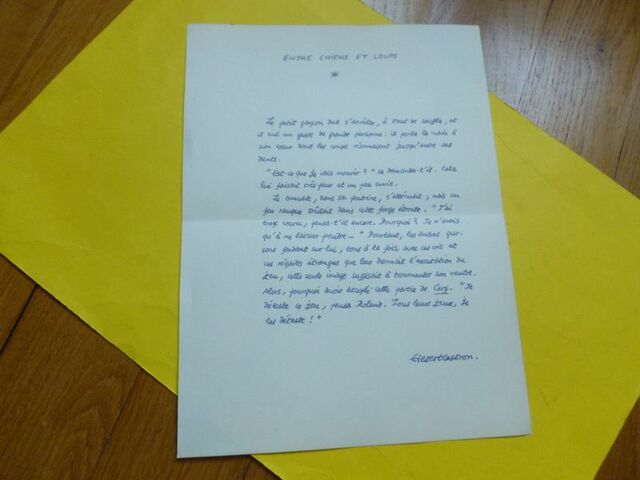 ENTRE CHIENS ET LOUPS
*
Le petit garçon dut s'arrêter, à bout de souffle, et
il eut un geste de grande personne : il porta la main à
son cœur dont les coups résonnaient jusqu'entre ses
dents.
"Est-ce que je vais mourir ?" se demanda-t'il. Cela
lui faisait très peur et un peu envie.
Le tumulte, dans sa poitrine, s'atténuait, mais un
feu rauque brûlait dans cette forge étroite. "J'ai
trop couru, pensa-t'il encore. Pourquoi ? Je n'avais
qu'à me laisser prendre..." Pourtant, les autres gar-
çons fondant sur lui, tous à la fois, avec ces cris et
ces regards étranges que leur donnait l'excitation du
jeu, cette seule image suffisait à tourmenter son ventre.
Alors, pourquoi avoir accepté cette partie de Cerf. "Je
déteste ce jeu, pensa Roland. Tous leurs jeux, je
les déteste !"